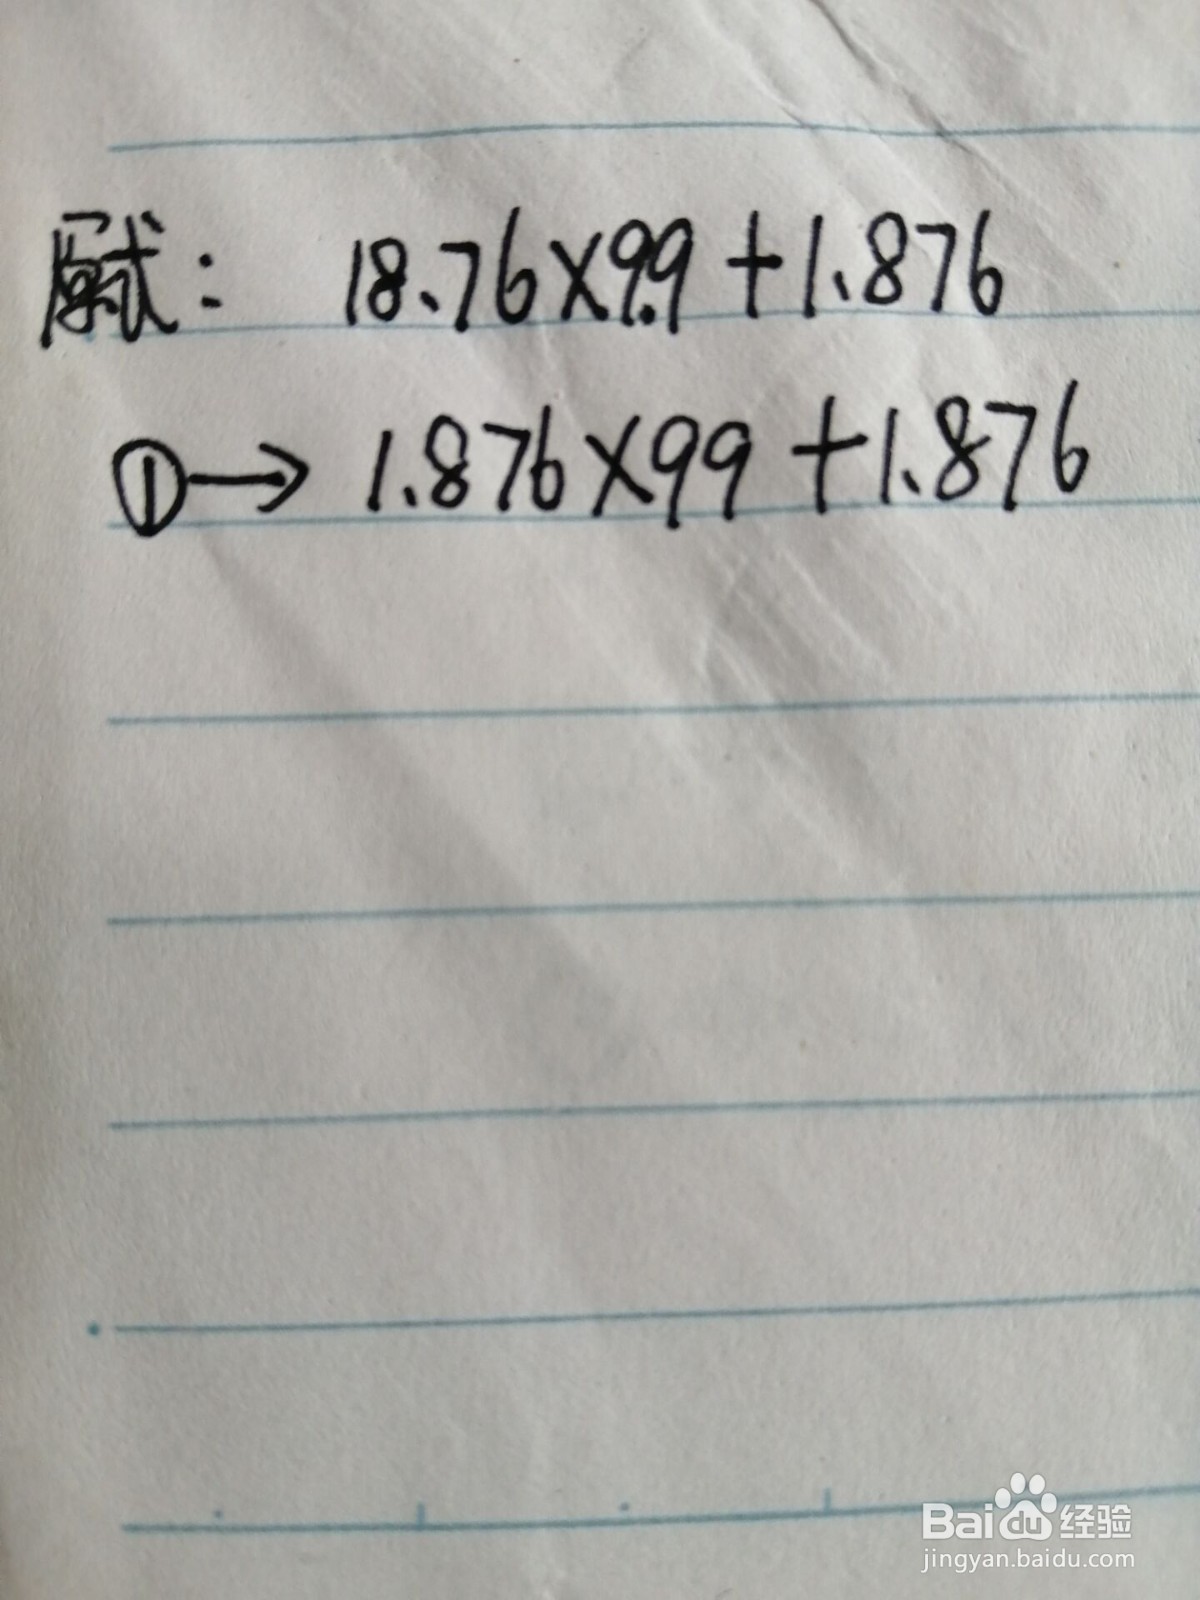 原式: 18.76×9.9+1.876
①→ 1.876×99+1.876
Baidu经验
jingyan.baidu.com